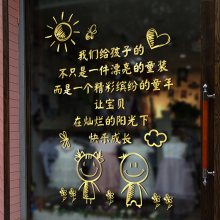 我们给孩子的
不只是一件漂亮的童装
而是一个精彩缤纷的童年
让宝贝
在灿烂的阳光下
快乐成长